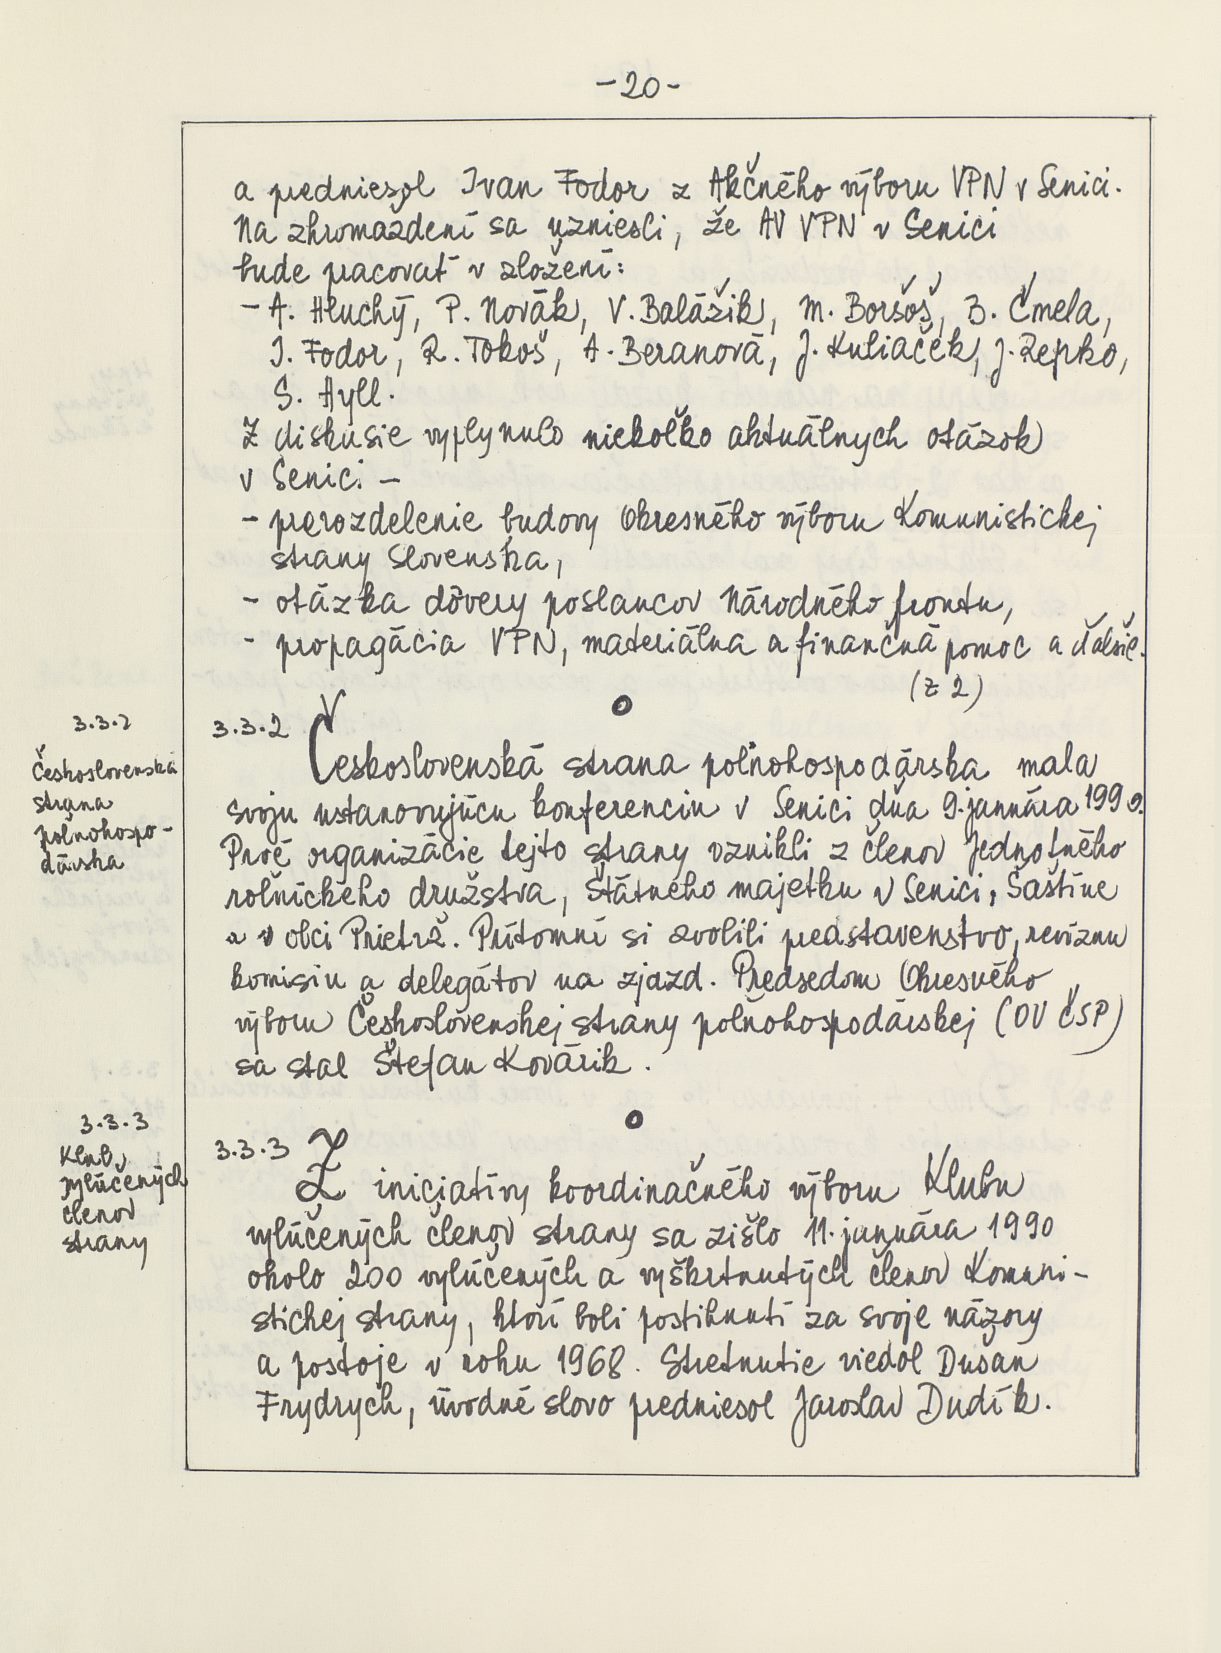 -20-
a predniesol Ivan Fodor z Akčného výboru VPN v Senici.
Na zhromaždení sa uzniesli, že AV VPN v Senici
bude pracovať v zložení:
- A. Hluchý, P. Novák, V. Balážik, M. Boršoš, B. Čmela,
I. Fodor, R. Tokoš, A. Beranová, J. Kuliaček, J. Repko,
S. Hyll.
Z diskusie vyplynulo niekoľko aktuálnych otázok
v Senici -
- prerozdelenie budovy Okresného výboru Komunistickej
strany Slovenska,
- otázka dôvery poslancov Národného frontu,
- propagácia VPN, materiálna a finančná pomoc a ďalšie.
(Z 2)
3.3.2
Československá
strana
poľnohospo-
dárska
3.3.2 Československá strana poľnohospodárska mala
svoju ustanovujúcu konferenciu v Senici dňa 9. januára 1990.
Prvé organizácie tejto strany vznikli z členov Jednotného
roľníckeho družstva, Štátneho majetku v Senici, Šaštíne
a v obci Prietrž. Prítomní si zvolili predstavenstvo, revíznu
komisiu a delegátov na zjazd. Predsedom Okresného
výboru Československej strany poľnohospodárskej (OV ČSP)
sa stal Štefan Kovárik.
3.3.3
Klub
vylúčených
členov
strany
3.3.3 Z iniciatívy koordinačného výboru Klubu
vylúčených členov strany sa zišlo 11. januára 1990
okolo 200 vylúčených a vyškrtnutých členov Komuni-
stickej strany, ktorí boli postihnutí za svoje názory
a postoje v roku 1968. Stretnutie viedol Dušan
Frydrych, úvodné slovo predniesol Jaroslav Dudík.